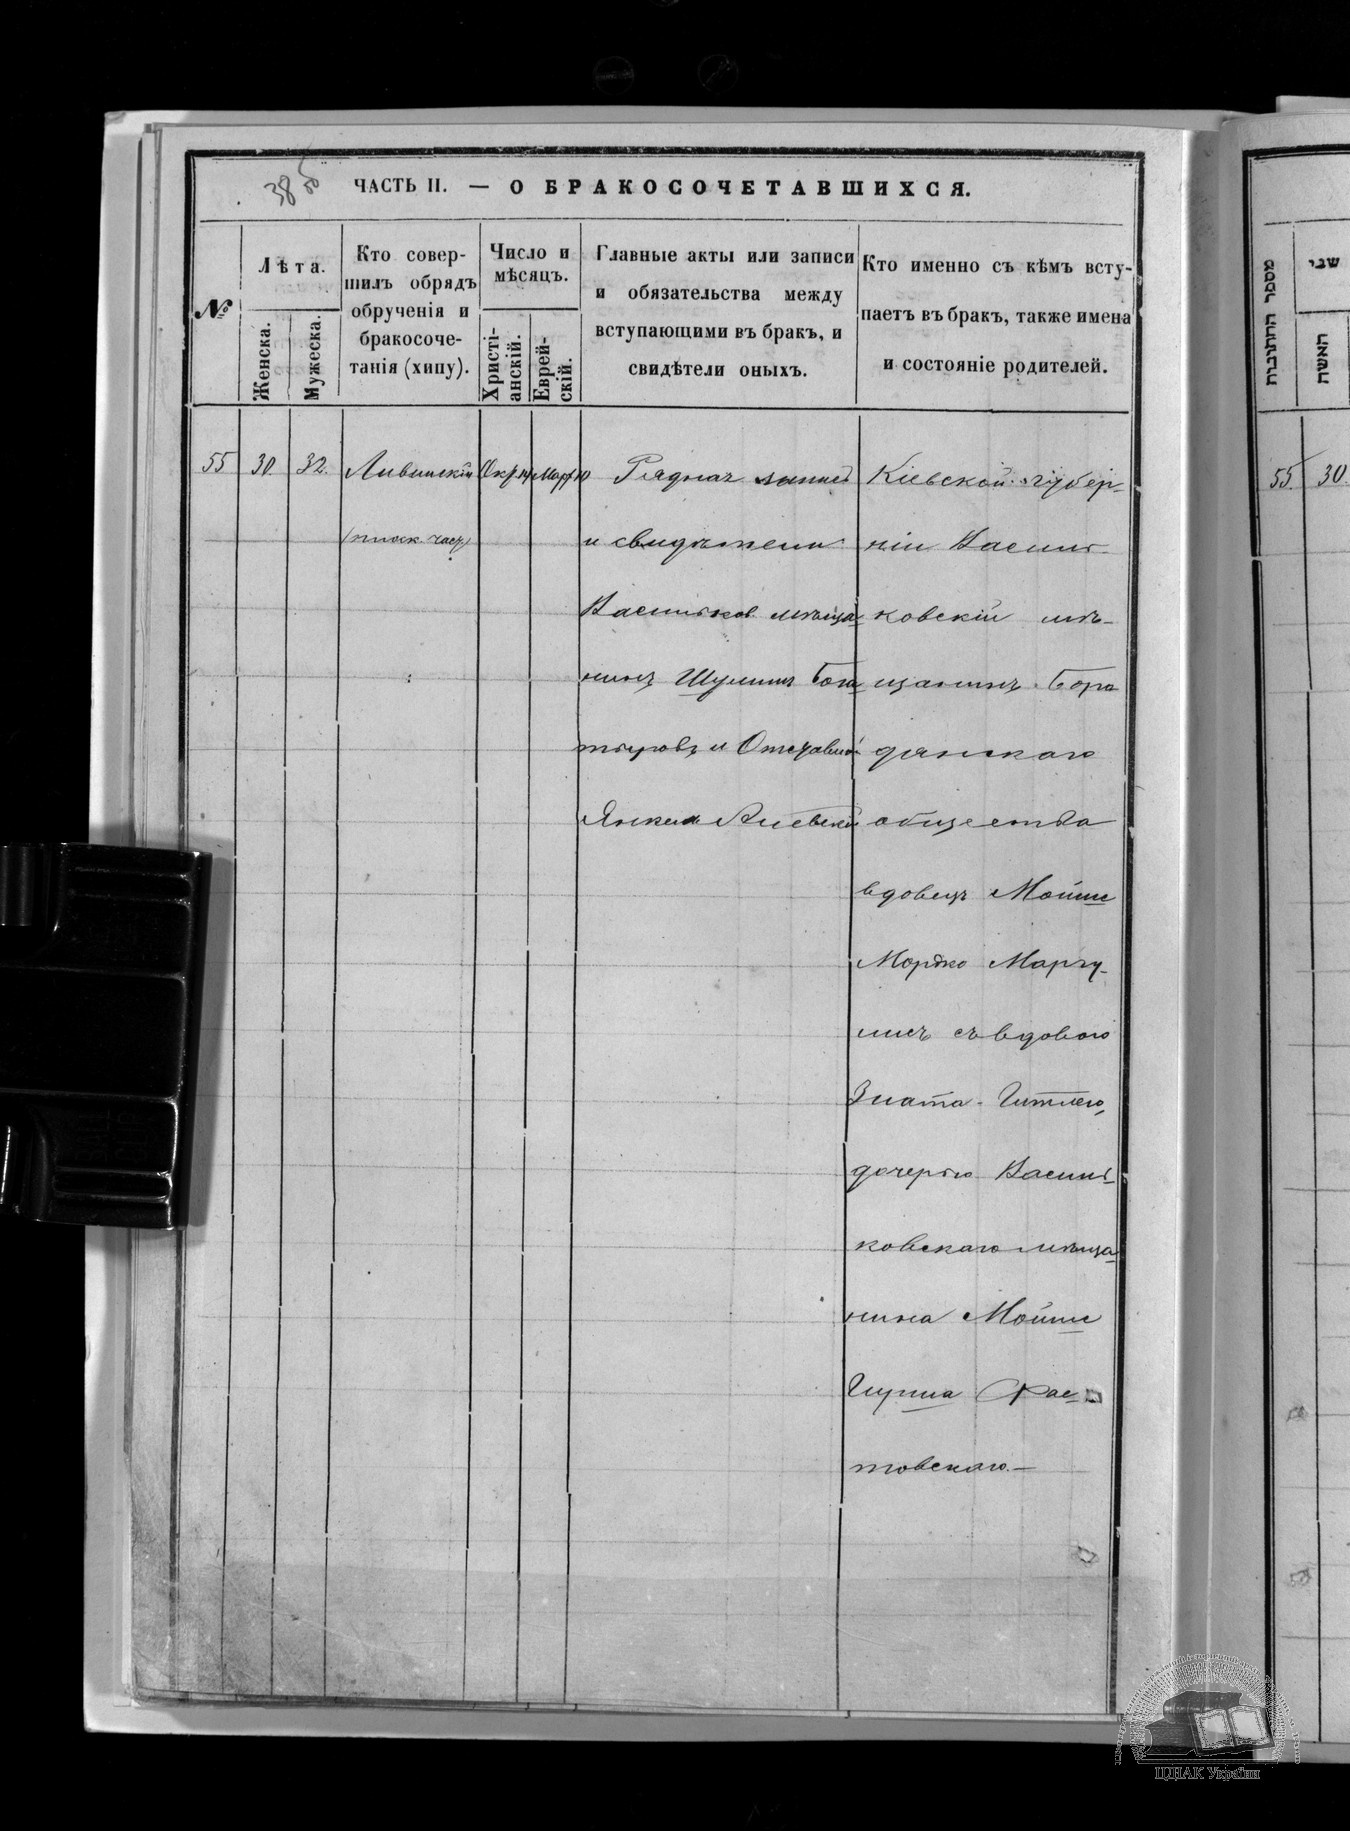 38 об
ЧАСТЬ II. — О БРАКОСОЧЕТАВШИХСЯ.
№
Лѣта.
Женска.
Мужеска.
Кто совер-
шилъ обрядъ
обрученія и
бракосоче-
танія (хипу).
Число и
мѣсяцъ.
Христі-
анскій.
Еврей-
скій.
Главные акты или записи
и обязательства между
вступающими въ бракъ, и
свидѣтели оныхъ.
Кто именно съ кѣмъ всту-
паетъ въ бракъ, также имена
и состояніе родителей.
55 30. 32.
Рядная запись
и свидѣтели
Васильков. мѣща-
нинъ Шулимъ Бога
тыровъ и Отставной
Янкель
Кіевской губер-
ніи Василь-
ковскій мѣ-
щанинъ Боро
дянскаго
общества
вдовецъ Мойше
Мордко Маргу-
лисъ съ вдовою
Злата-Гитлею,
дочерью Василь-
ковскаго мѣща-
нина Мойше
Гирша Фас-
товскаго.—
מספר החתונות
שני
האשה
55. 30.
ЦДІАК України